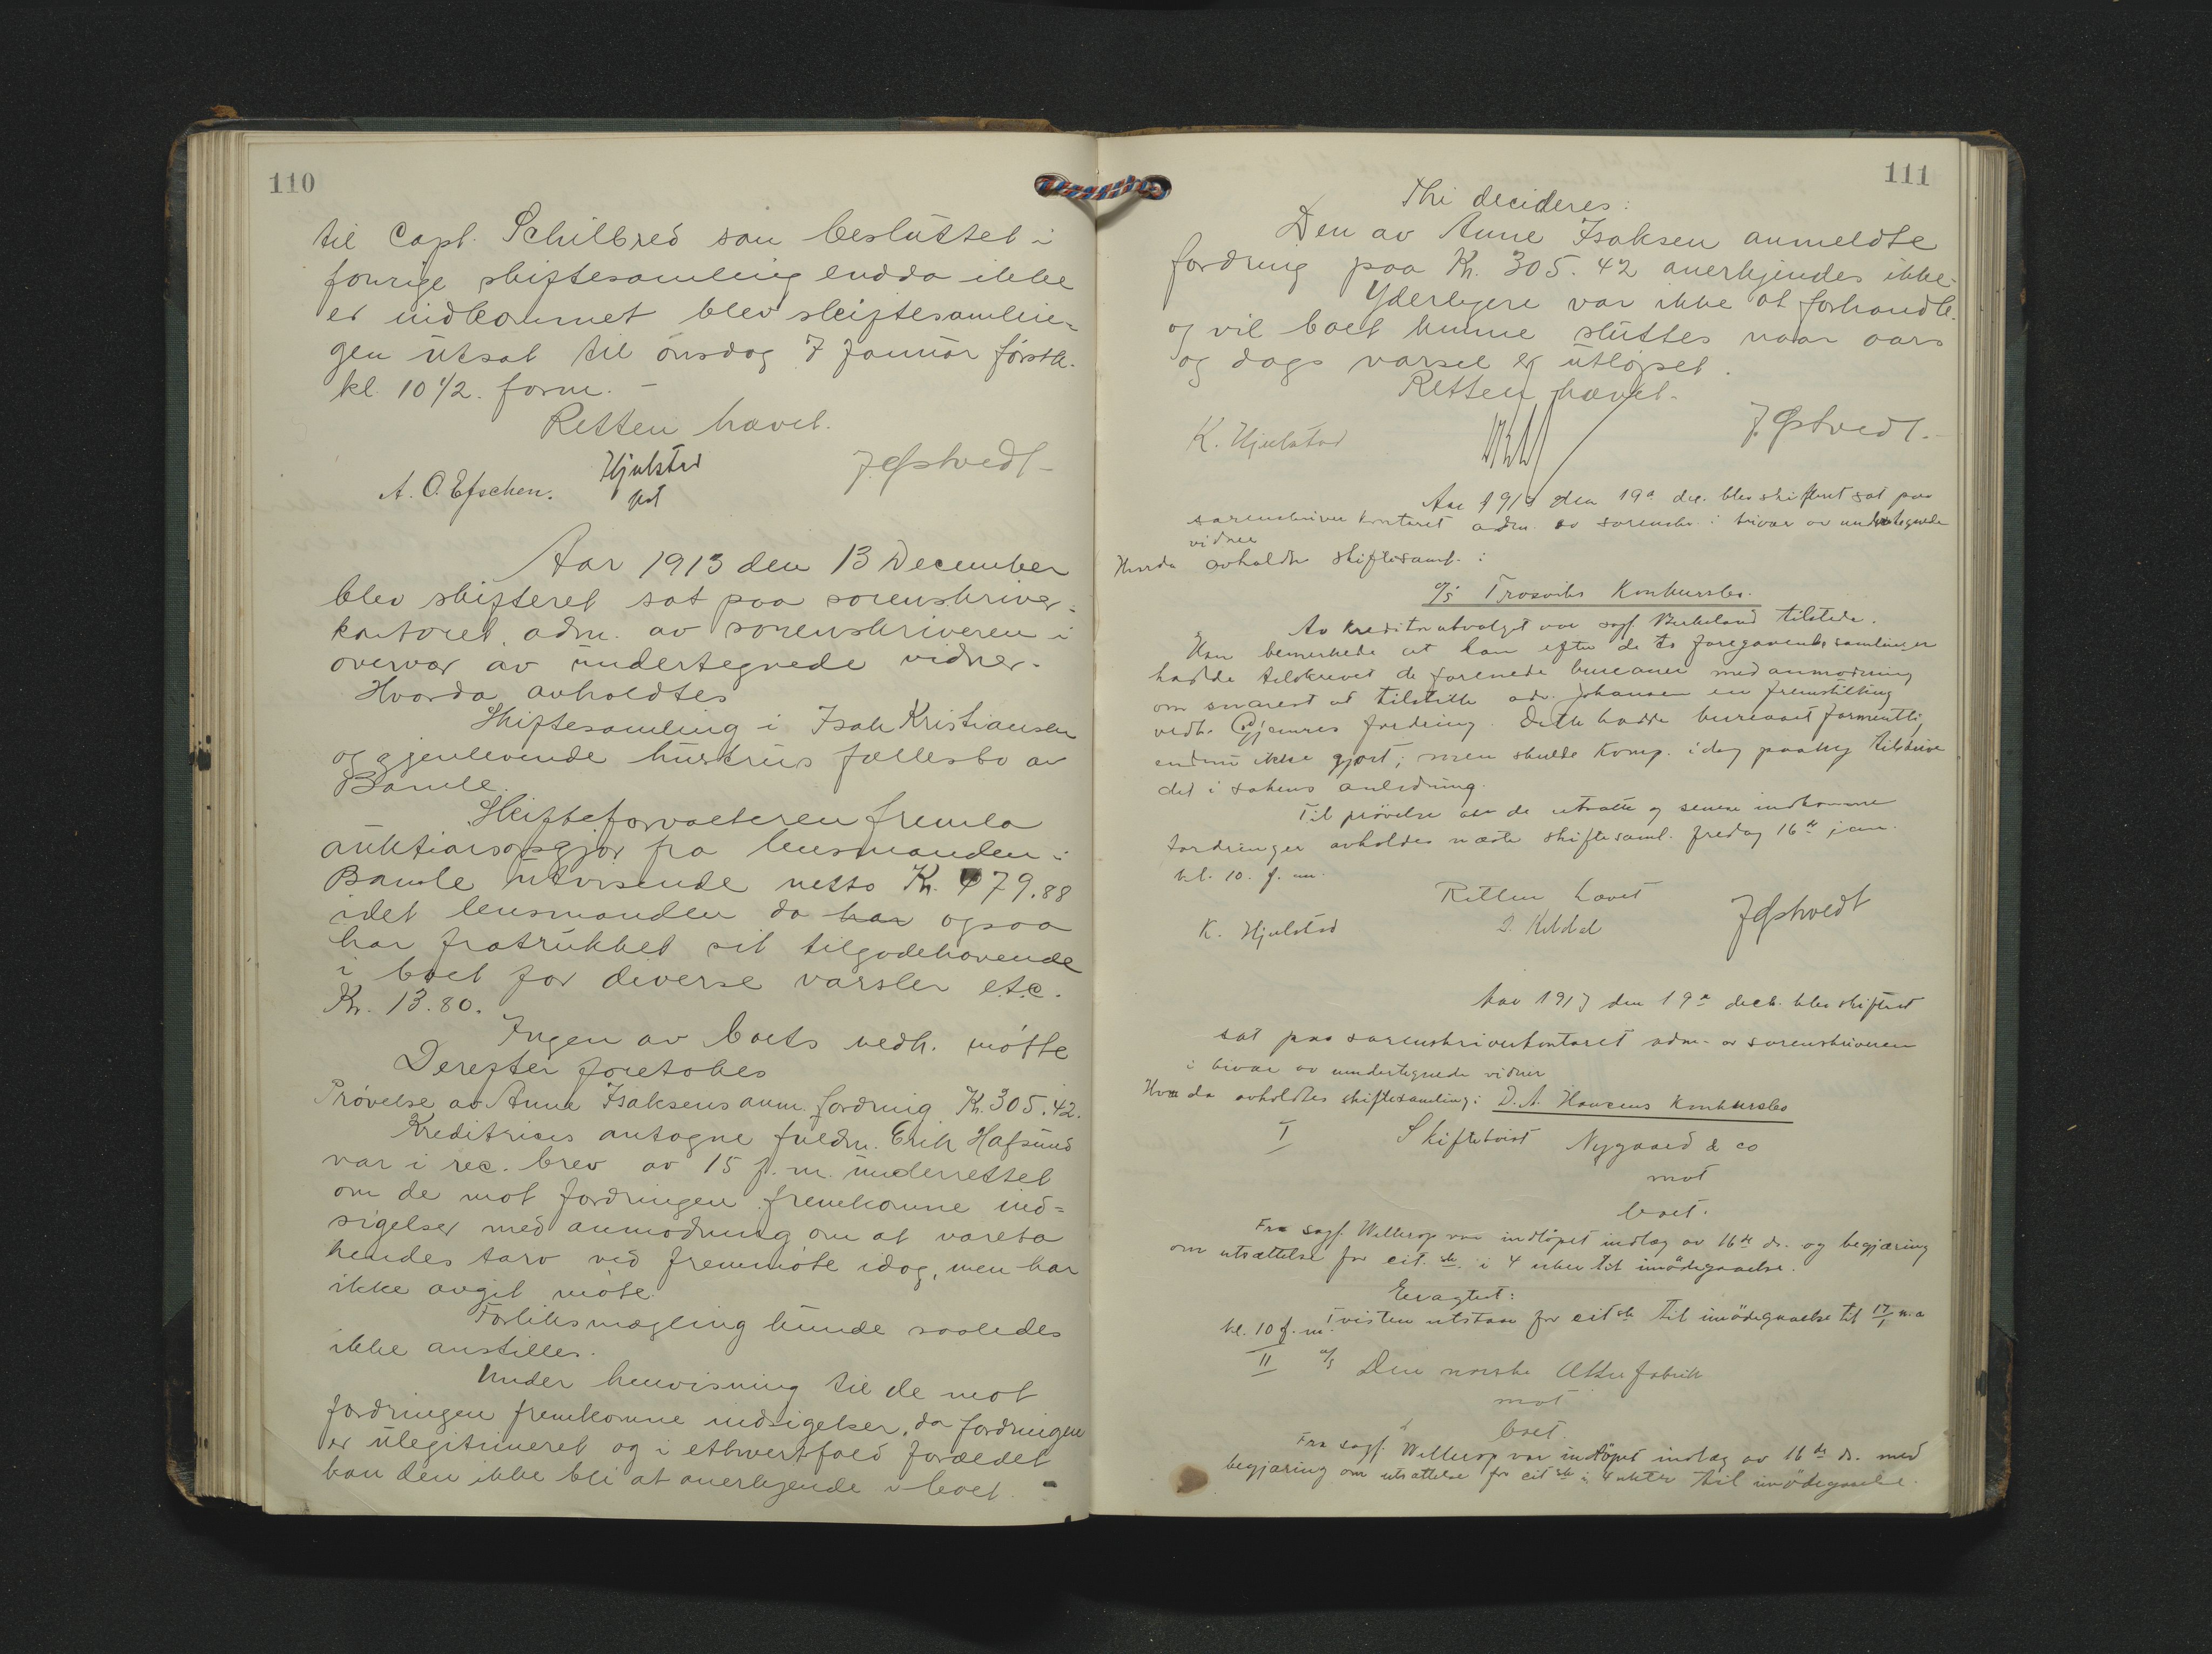 110
til Capt. Schilbred som besluttet i
forrige skiftesamling endda ikke
er indkommet blev skiftesamlin-
gen utsat til onsdag 7 Januar førstk.
kl. 10 1/2. form. -
Retten hævet.
Hjulstad
J. Østvedt
A. O. Efschen.
Aar 1913 den 13 December
blev skifteret sat paa sorenskriver-
kontoret adm. av sorenskriveren i
overvær av undertegnede vidner.
Hvorda avholdtes
Skiftesamling i Isak Kristiansen
og gjenlevende hustrus fællesbo av
Bamle.
Skifteforvalteren fremla
auktionsopgjør fra lensmanden i
Bamle utvisende netto Kr. 479.88
idet lensmanden da har ogsaa
har fratrukket sit tilgodehavende
i boet for diverse varsler etc.
Kr. 13.80.
Ingen av boets vedk. møtte
Derefter foretokes
Prøvelse av Anne Isaksens anm. fordring Kr. 305.42.
Kreditrices antagne fuldm. Erik Hafsund
var i rec. brev av 15 f.m. underrettet
om de mot fordringen fremkomne ind=
sigelser med anmodning om at vareta
hendes tarv ved fremmøte idag, men har
ikke avgit møte.
Forliksmægling kunde saaledes
ikke anstilles.
Under henvisning til de mot
fordringen fremkomne indsigelser, da fordringen
er ulegitimeret og i ethvertfald forældet
kan den ikke bli at anerkjende i boet.
111
Thi decideres:
Den av Anne Isaksen anmeldte
fordring paa Kr. 305.42 anerkjendes ikke.
Yderligere var ikke at forhandle
og vil boet kunne sluttes naar aars
og dags varsel er utløpet.
Retten hævet.
K. Hjulstad
J. Østvedt.
Aar 1913 den 19de dec. blev skifteret sat paa
sorenskriver kontoret adm. av sorenskr. i bivær av undertegnede
vidner
Hvorda avholdtes skiftesaml. i
a/s Trosviks Konkursbo.
Av kreditorutvalget var sagf. Birkeland tilstede.
Han bemerkede at han efter de to foregaaende samlinger
hadde tilskrevet de forenede bureauer med anmodning
om snarest at tilstille adv. Johansen en fremstilling
vedk. Gjemres fordring. Dette hadde bureauet formentlig
endnu ikke gjort, men skulde Komp. idag paany tilskrive
det i sakens anledning.
Til prøvelse av de utsatte og senere indkomne
fordringer avholdes næste skiftesaml. fredag 16de jan.
kl. 10 f.m.
Retten hævet
K. Hjulstad
J. Østvedt
Aar 1913 den 19de decb. blev skifteret
sat paa sorenskriverkontoret adm. av sorenskriveren
i bivær av undertegnede vidner
Hvorda avholdtes skiftesamling i D. A. Hansens Konkursbo
I Skiftetvist Nygaard & co
mot
boet.
Fra sagf. Wellerop var indløpet indlæg av 16de ds. og begjæring
om utsættelse for cit. sk. i 4 uker til imødegaaelse.
Eragtet:
Tvisten utstaar for citsk til imødegaaelse til 17/1 n.a
kl. 10 f.m.
II a/s Den norske Ætherfabrik
mot
boet.
Fra sagf. Wellerop var indløpet indlæg av 16de ds. med
begjæring om utsættelse for citsk i 4 uker til imødegaaelse.